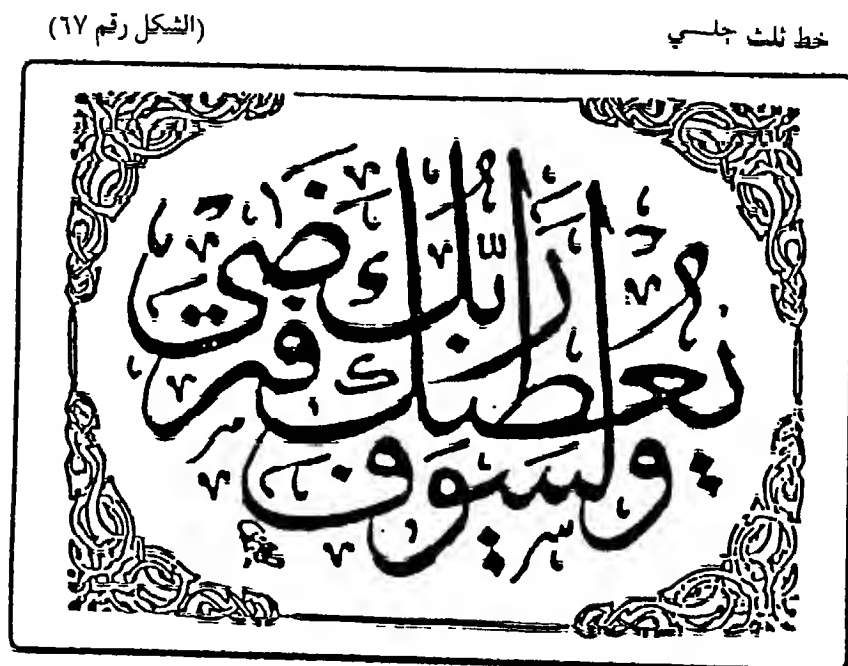 خط ثلث جلسي
(الشكل رقم ٦٧)
ولسوف
يعطيك
ربك
فترضى